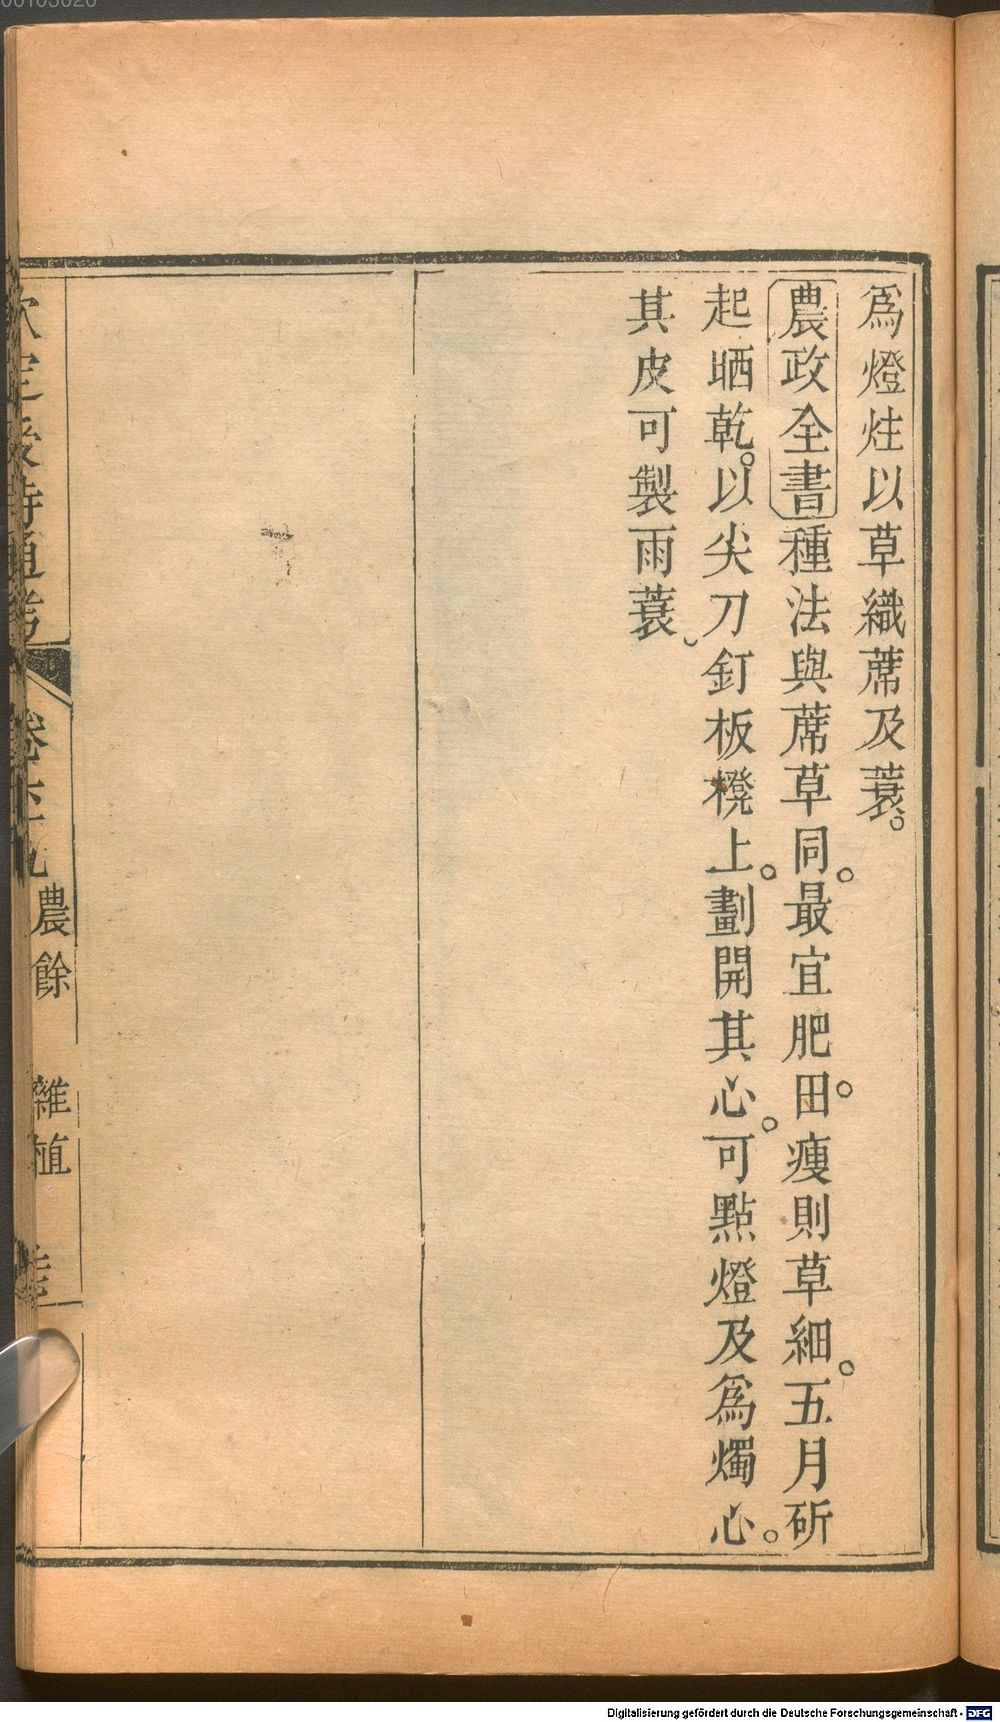 00103020
爲燈炷以草織蓆及蓑。
農政全書種法與蓆草同。最宜肥田。瘦則草細。五月斫
起晒乾。以尖刀釘板櫈上。劃開其心。可點燈及爲燭心。
其皮可製雨蓑
欽定授時通考 卷六十九 農餘 雜植
Digitalisierung gefördert durch die Deutsche Forschungsgemeinschaft - DFG